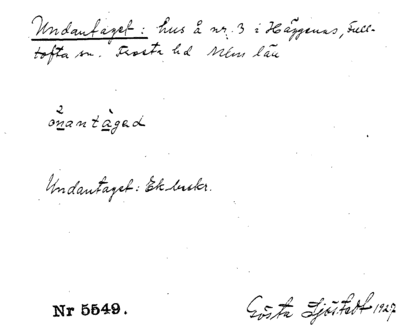 Undantaget: hus å nr. 3 i Häggenäs, Full-
tofta sn. Frosta hd Mlm län
2
ònantàged
Undantaget: Ek. beskr.
Nr 5549. Gösta Sjöstedt 1927